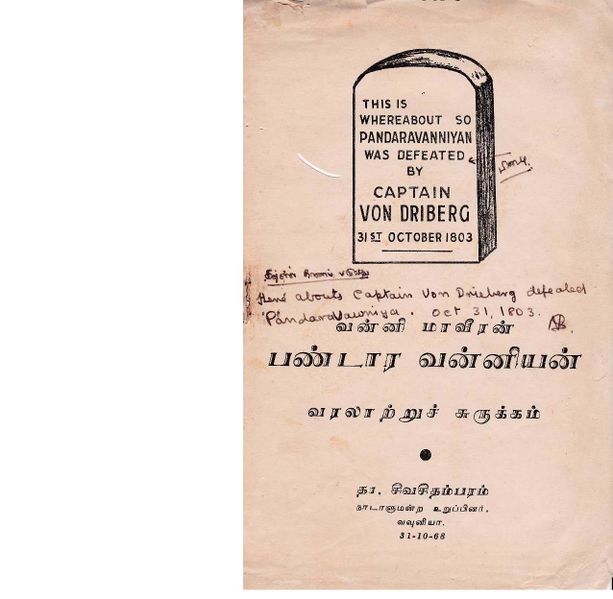 THIS IS
WHEREABOUT SO
PANDARAVANNIYAN
WAS DEFEATED
BY
CAPTAIN
VON DRIBERG
31ST OCTOBER 1803
Here abouts Captain Von Drieberg defealed
'Pandaravanniya. Oct 31, 1803.
வன்னி மாவீரன்
பண்டார வன்னியன்
வரலாற்றுச் சுருக்கம்
தா. சிவசிதம்பரம்
நாடாளுமன்ற உறுப்பினர்.
வவுனியா.
31-10-68